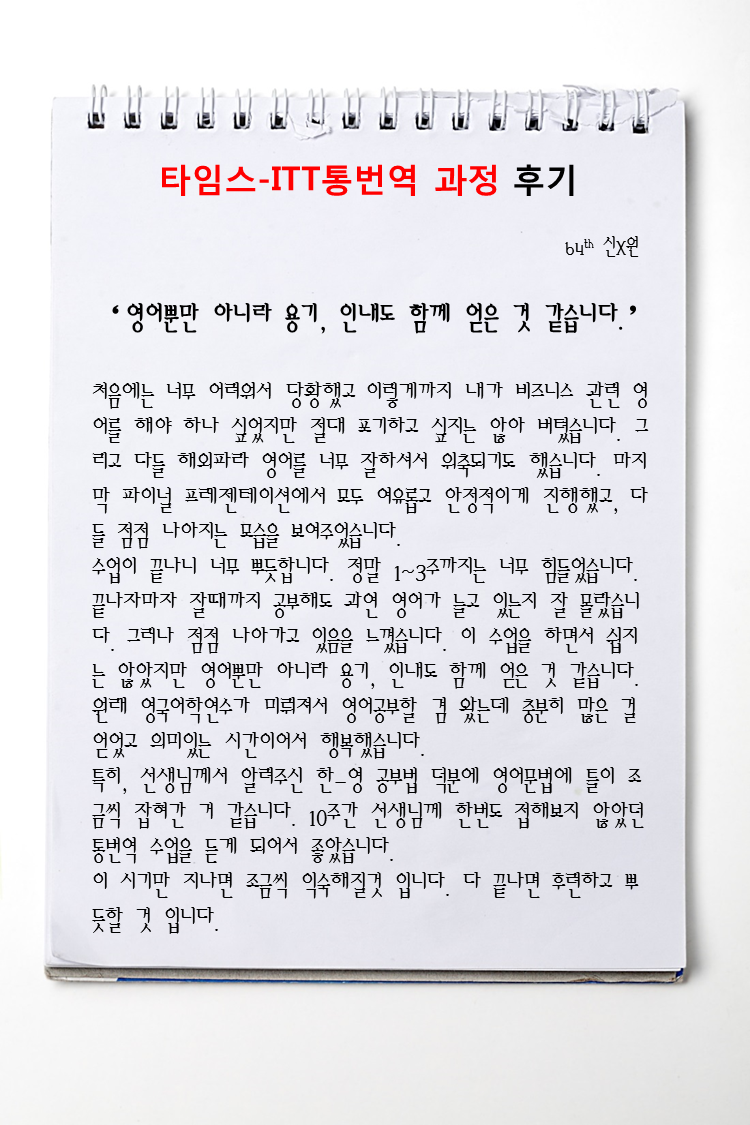 타임스-ITT통번역 과정 후기
64th 신X원
‘영어뿐만 아니라 용기, 인내도 함께 얻은 것 같습니다.’
처음에는 너무 어려워서 당황했고 이렇게까지 내가 비즈니스 관련 영
어를 해야 하나 싶었지만 절대 포기하고 싶지는 않아 버텼습니다. 그
리고 다들 해외파라 영어를 너무 잘하셔서 위축되기도 했습니다. 마지
막 파이널 프레젠테이션에서 모두 여유롭고 안정적이게 진행했고, 다
들 점점 나아지는 모습을 보여주었습니다.
수업이 끝나니 너무 뿌듯합니다. 정말 1~3주까지는 너무 힘들었습니다.
끝나자마자 잘때까지 공부해도 과연 영어가 늘고 있는지 잘 몰랐습니
다. 그러나 점점 나아가고 있음을 느꼈습니다. 이 수업을 하면서 쉽지
는 않았지만 영어뿐만 아니라 용기, 인내도 함께 얻은 것 같습니다.
원래 영국어학연수가 미뤄져서 영어공부할 겸 왔는데 충분히 많은 걸
얻었고 의미있는 시간이어서 행복했습니다.
특히, 선생님께서 알려주신 한_영 공부법 덕분에 영어문법에 틀이 조
금씩 잡혀간 거 같습니다. 10주간 선생님께 한번도 접해보지 않았던
통번역 수업을 듣게 되어서 좋았습니다.
이 시기만 지나면 조금씩 익숙해질것 입니다. 다 끝나면 후련하고 뿌
듯할 것 입니다.